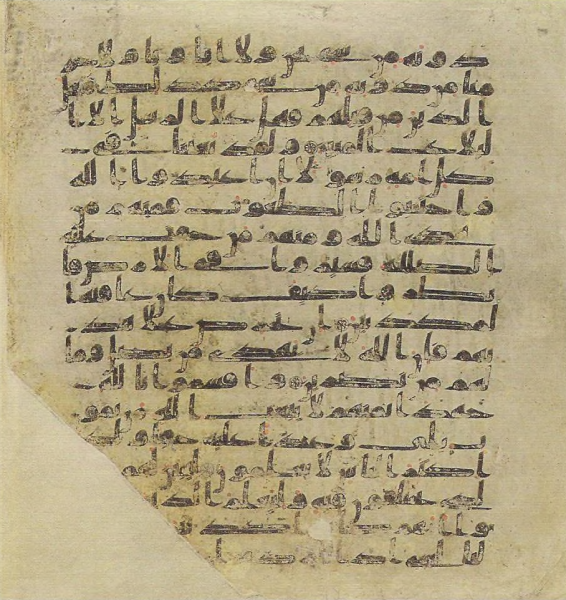 دونه من شى نحن ولا اباونا ولا حر
منا من دونه من شى كذلك فعل
الذين من قبلهم فهل على الرسل الا ا
لبلغ المبين ولقد بعثنا فى
كل امه رسولا ان اعبدوا الله
واجتنبوا الطغوت فمنهم من
هدى الله ومنهم من حقت عليه
الضلله فسيروا فى الارض فا
نظروا كيف كان عقبه ا
لمكذبين ان تحرص على هد
يهم فان الله لا يهدى من يضل وما
لهم من نصرين واقسموا بالله
جهد ايمنهم لا يبعث الله من يمو
ت بلى وعدا عليه حقا ولكن
اكثر الناس لا يعلمون ليبين لهم
لذى يختلفون فيه وليعلم الذ
وا انهم كانوا
لنا لشى اذا اردنه